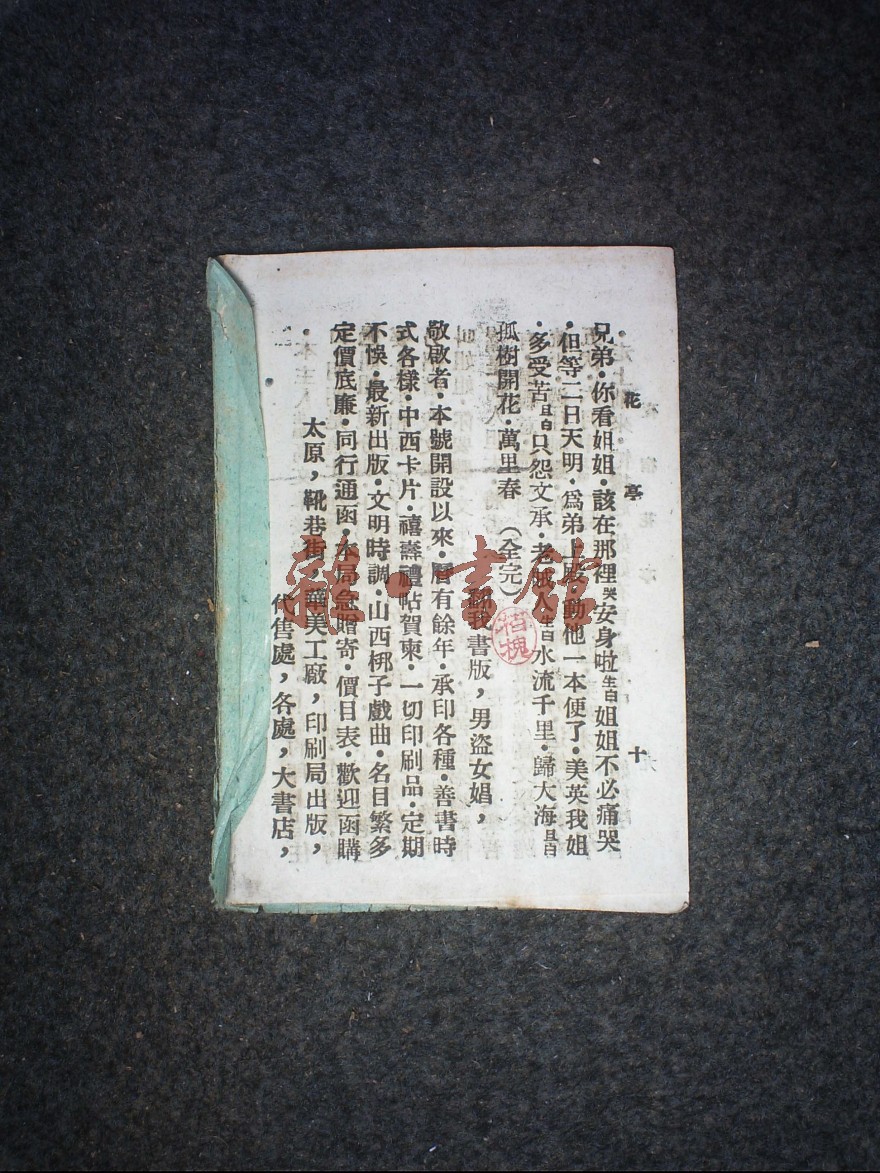 花亭 十
兄弟·你看姐姐·該在那裡哭安身啦生白姐姐不必痛哭
·但等二日天明·爲弟上殿·動他一本便了·美英我姐
·多受苦旦白只怨文承·老賊人生白水流千里·歸大海旦白
孤樹開花·萬里春 (全完)
翻我書版，男盜女娼，
敬啟者·本號開設以來·曆有餘年·承印各種·善書時
式各樣·中西卡片·禧壽禮帖賀柬·一切印刷品·定期
不悞·最新出版·文明時調·山西梆子戲曲·名目繁多
定價底廉·同行通函·本局急贈寄·價目表·歡迎函購
太原，靴巷街，華美工廠，印刷局出版，
代售處，各處，大書店，
雜·書館